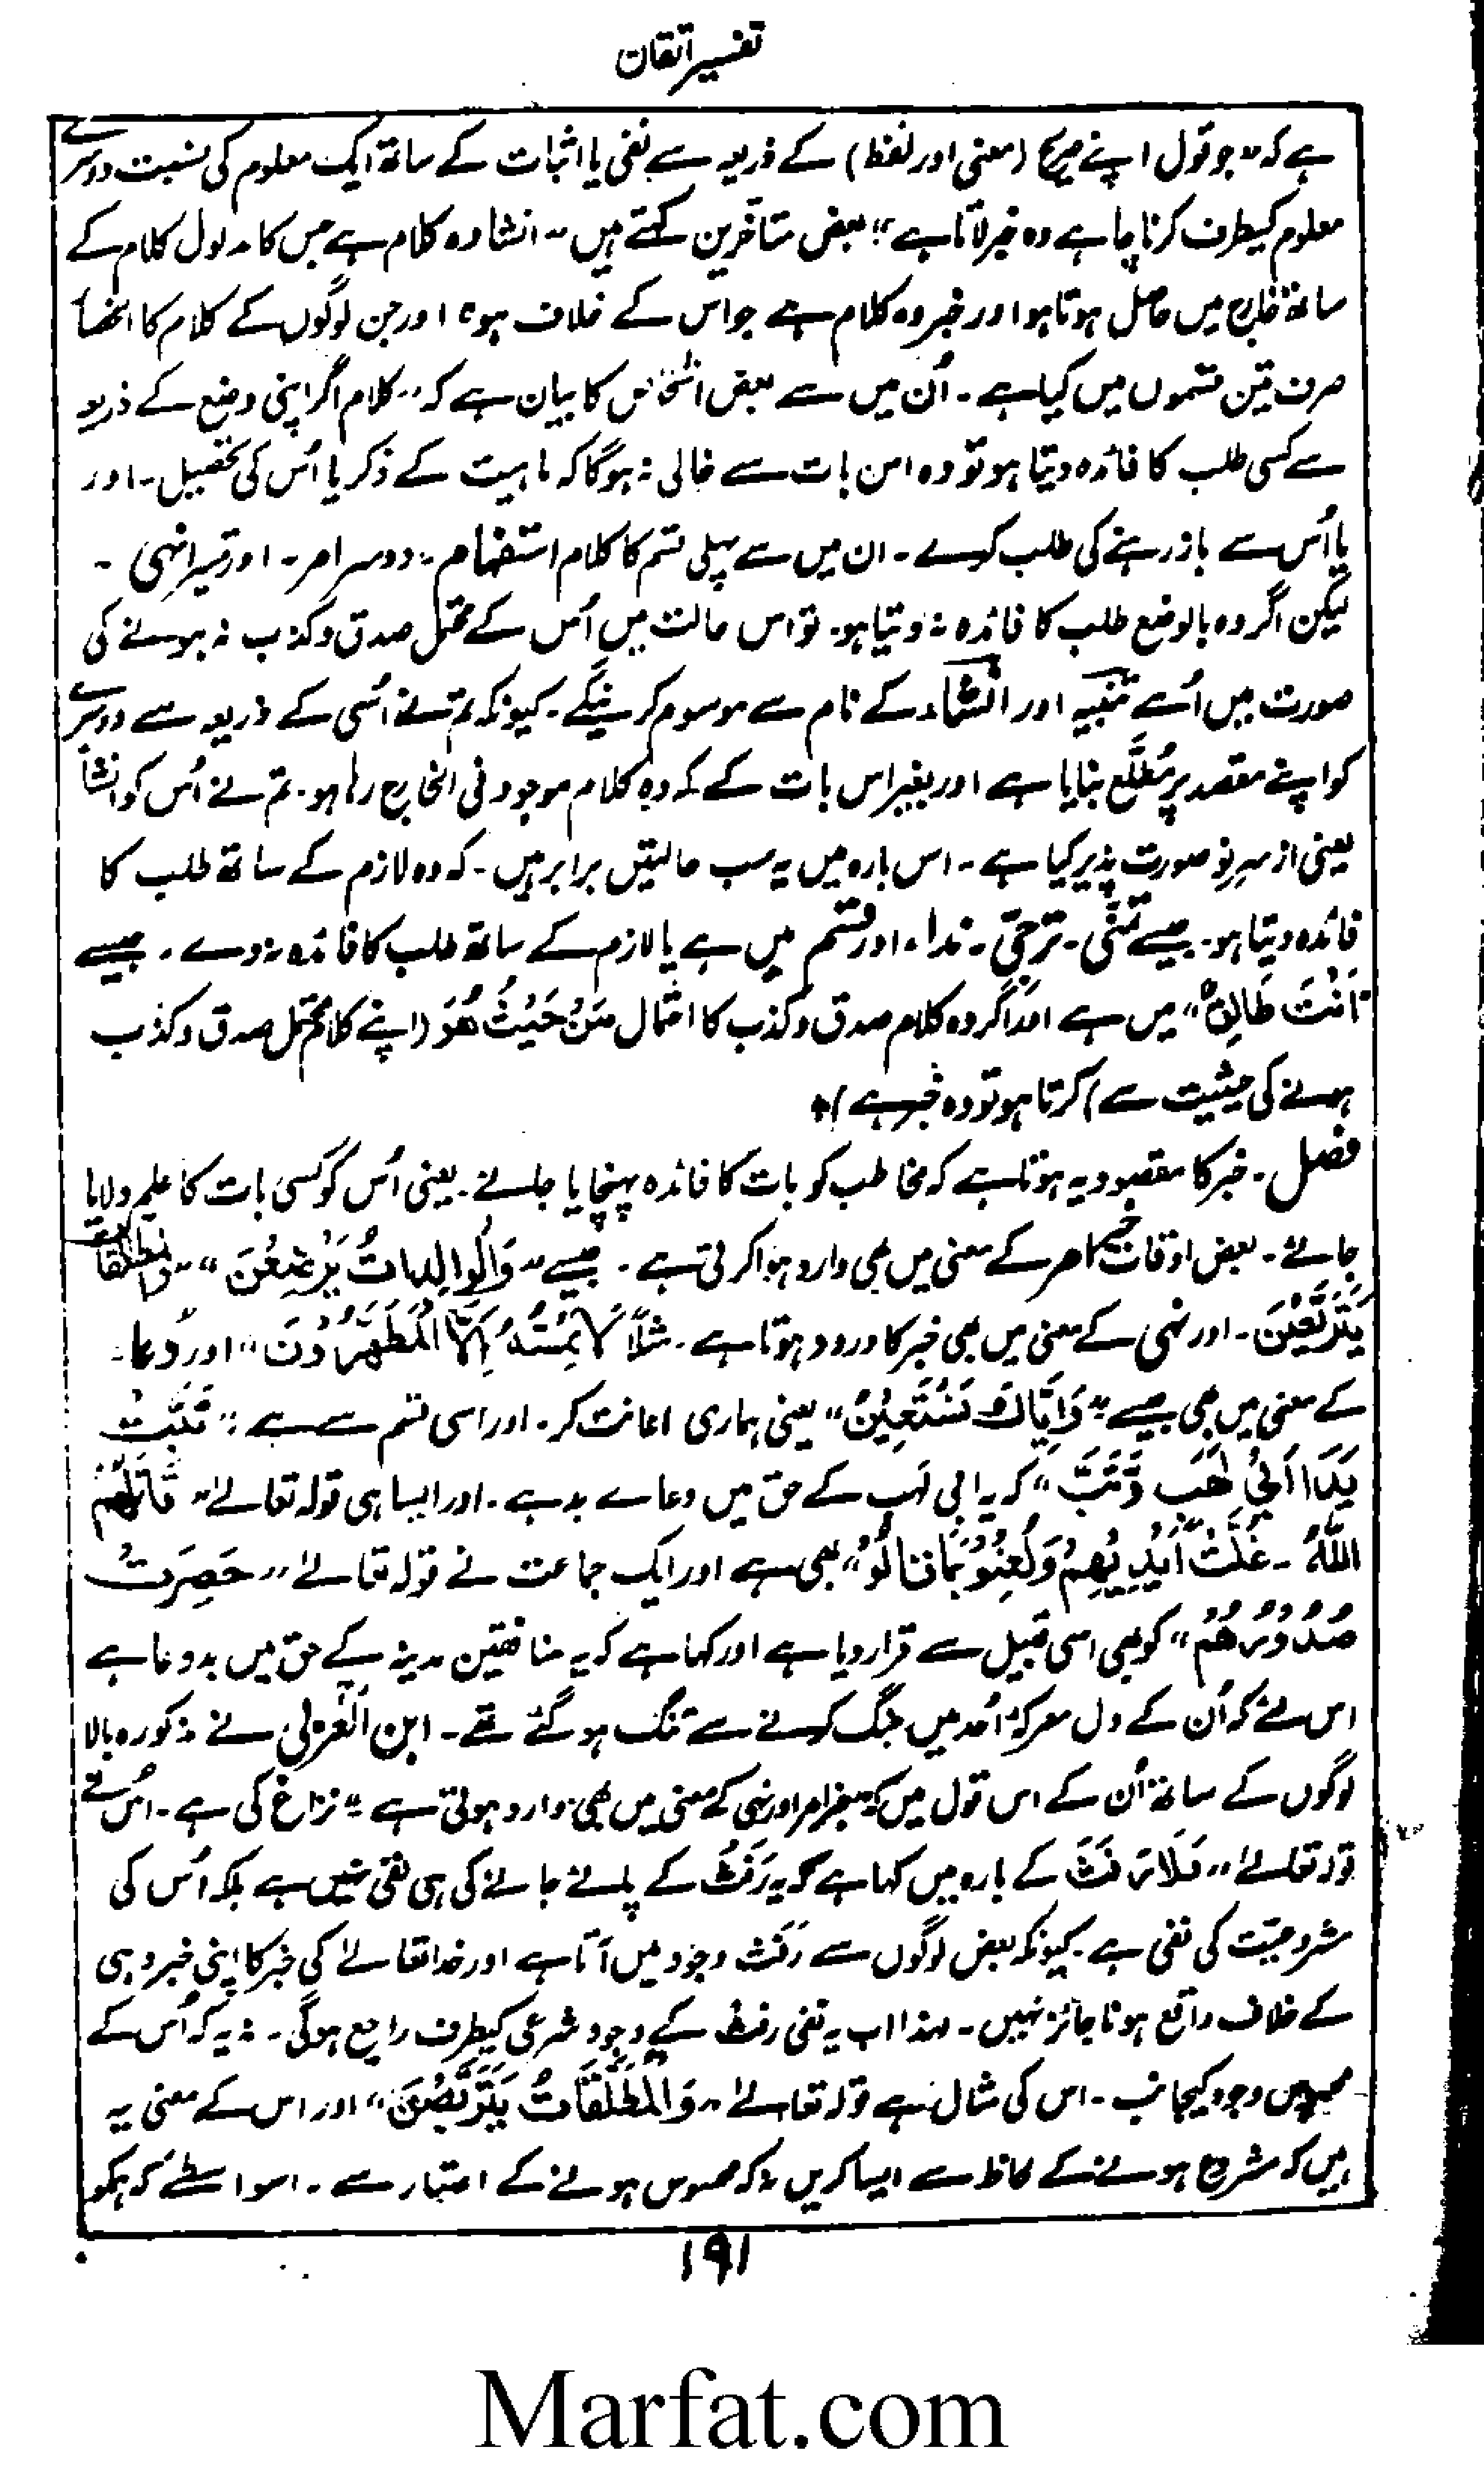 تفسیر اتقان
ہے کہ ”جو قول اپنے صریح (معنی اور لفظ) کے ذریعہ سے نفی یا اثبات کے ساتھ ایک معلوم کی نسبت دوسرے
معلوم کیطرف کرنا چاہے وہ خبر لاتا ہے“ بعض متأخرین کہتے ہیں ”انشا وہ کلام ہے جس کا مدلول کلام کے
ساتھ خارج میں حاصل ہوتا ہو اور خبر وہ کلام ہے جو اس کے خلاف ہو“ اور جن لوگوں نے کلام کا انحصار
صرف تین قسموں میں کیا ہے۔ اُن میں سے بعض اشخاص کا بیان ہے کہ ”کلام اگر اپنی وضع کے ذریعہ
سے کسی طلب کا فائدہ دیتا ہو تو وہ اس بات سے خالی نہ ہوگا کہ ماہیت کے ذکر یا اُس کی تحصیل۔ اور
یا اُس سے باز رہنے کی طلب کرے۔ ان میں سے پہلی قسم کا کلام استفہام۔ دوسرا امر۔ اور تیسرا نہی۔
لیکن اگر وہ بالوضع طلب کا فائدہ نہ دیتا ہو۔ تو اس حالت میں اُس کے محتمل صدق و کذب نہ ہونے کی
صورت میں اُسے تنبیہ اور انشاء کے نام سے موسوم کرینگے۔ کیونکہ تم نے اُسی کے ذریعہ سے دوسرے
کو اپنے مقصد پر مُطَّلَع بنایا ہے اور بغیر اس بات کے کہ وہ کلام موجود فی الخارج رہا ہو۔ تم نے اُس کو انشأ
یعنی از سرِ نو صورت پذیر کیا ہے۔ اس بارہ میں یہ سب حالتیں برابر ہیں۔ کہ وہ لازم کے ساتھ طلب کا
فائدہ دیتا ہو۔ جیسے تمنّی۔ ترجّی۔ نداء۔ اور قسم میں ہے یا لازم کے ساتھ طلب کا فائدہ نہ دے۔ جیسے
”اَنْتَ طَالِقٌ“ میں ہے اور اگر وہ کلام صدق و کذب کا احتمال مَنْ حَيْثُ هُوَ (اپنے کلام محتمل صدق و کذب
ہونے کی حیثیت سے) کرتا ہو تو وہ خبر ہے)+
فصل۔ خبر کا مقصود یہ ہوتا ہے کہ مخاطب کو بات کا فائدہ پہنچایا جائے۔ یعنی اُس کو کسی بات کا علم دلایا
جائے۔ بعض اوقات خبر امر کے معنی میں بھی وارد ہوا کرتی ہے۔ جیسے ”وَالْوَالِدَاتُ يُرْضِعْنَ“ ”وَالْمُطَلَّقَاتُ
يَتَرَبَّصْنَ۔ اور نہی کے معنی میں بھی خبر کا ورود ہوتا ہے۔ مثلاً لَا يَمَسُّهُ إِلَّا الْمُطَهَّرُوْنَ“ اور دُعا۔
کے معنی میں بھی جیسے ”وَاِيَّاكَ نَسْتَعِيْنُ“ یعنی ہماری اعانت کر۔ اور اسی قسم سے ہے ”تَبَّتْ
يَدَا اَبِيْ لَهَبٍ وَّتَبَّ“ کہ یہ ابی لہب کے حق میں دعاے بد ہے۔ اور ایسا ہی قولہ تعالےٰ ”قَاتَلَهُمُ
اللّٰهُ۔ غُلَّتْ اَيْدِيْهِمْ وَلُعِنُوْا بِمَا قَالُوْا“ بھی ہے اور ایک جماعت نے قولہ تعالےٰ ”حَصِرَتْ
صُدُوْرُهُمْ“ کو بھی اسی قبیل سے قرار دیا ہے اور کہا ہے کہ یہ منافقین مدینہ کے حق میں بد دعا ہے
اس لئے کہ اُن کے دل معرکۂ اُحد میں جنگ کرنے سے تنگ ہو گئے تھے۔ ابن العَربی نے مذکورہ بالا
لوگوں کے ساتھ اُن کے اس قول میں کہ ”خبر امر اور نہی کے معنی میں بھی وارد ہوتی ہے“ نزاع کی ہے۔ اُس نے
قولہ تعالےٰ ”فَلَا رَفَثَ کے بارہ میں کہا ہے کہ یہ رَفَثْ کے پائے جانے کی ہی نفی نہیں ہے بلکہ اُس کی
مشروعیّت کی نفی ہے۔ کیونکہ بعض لوگوں سے رَفَث وجود میں آتا ہے اور خدا تعالےٰ کی خبر کا اپنی خبر دہی
کے خلاف واقع ہونا جائز نہیں۔ لہذا اب یہ نفی رفث کے وجود شرعی کیطرف راجع ہوگی۔ نہ یہ کہ اُس کے
محسوس وجود کیجانب۔ اس کی مثال ہے قولہ تعالےٰ ”وَالْمُطَلَّقَاتُ يَتَرَبَّصْنَ“ اور اس کے معنی یہ
ہیں کہ مشروع ہونے کے لحاظ سے ایسا کریں نہ کہ محسوس ہونے کے اعتبار سے۔ اسواسطے کہ ہمکو
۱۹۱
Marfat.com